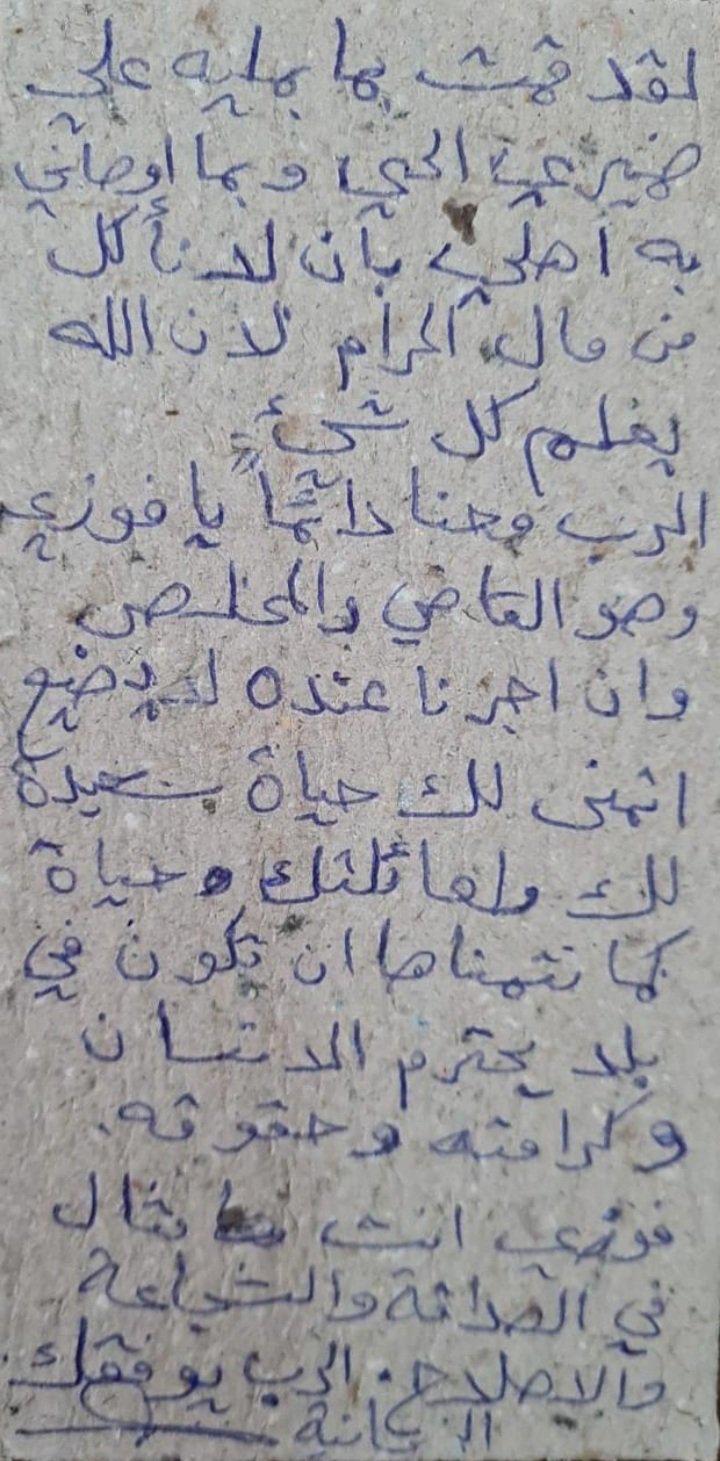 لقد قمت بما يمليه علي
ضميري الحي وبما اوصاني
به اهلي بأن لا نأكل
من مال الحرام لان الله
يعلم كل شيءٍ
الرب معنا دائماً يا فوزي
وهو القاضي والمخلص
وان اجرنا عنده لا يضيع
اتمنى لك حياة سعيدة
لك ولعائلتك وحياة
كما نتمناها ان تكون في
بلد يحترم الانسان
وكرامته وحقوقه.
فوزي انت مثال
في الصداقة والشجاعة
والاصلاح. الرب يوفقك